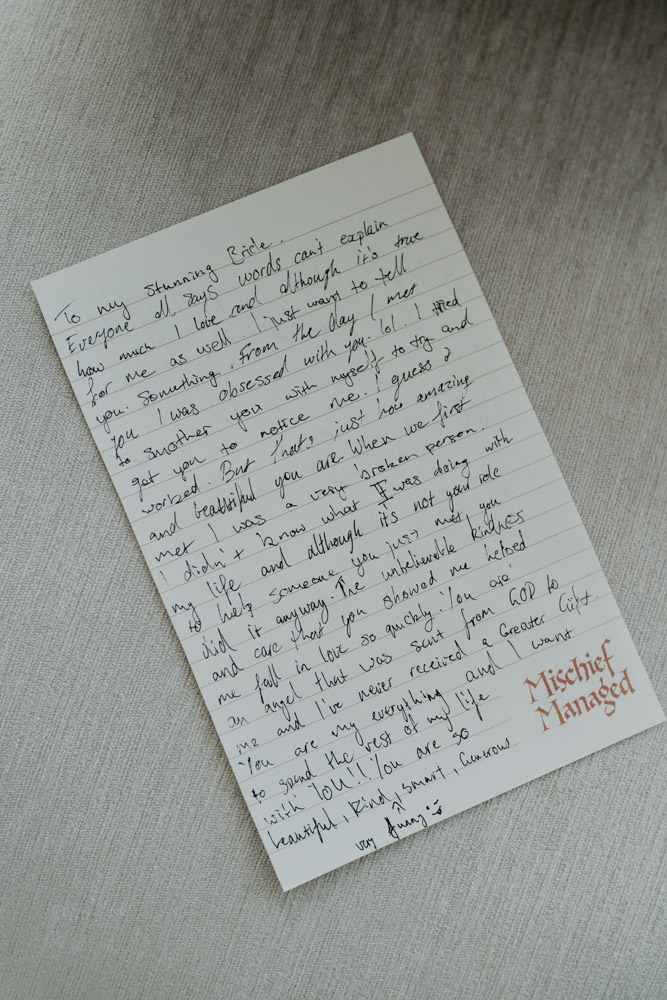 To my Stunning Bride.
Everyone all says words can't explain
how much I love and although it's true
for me as well I just want to tell
you something. From the day I met
you I was obsessed with you. lol. I tried
to smother you with myself to try and
get you to notice me. I guess it
worked. But that's just how amazing
and beautiful you are. When we first
met I was a very broken person.
I didn't know what I was doing with
my life and although it's not your role
to help someone you just met you
did it anyway. The unbelievable kindness
and care that you showed me helped
me fall in love so quickly. You are
an angel that was sent from GOD to
me and I've never received a Greater Gift.
You are my everything and I want
to spend the rest of my life
with YOU!! You are so
beautiful, Kind, Smart, Generous
very funny :)
Mischief
Managed